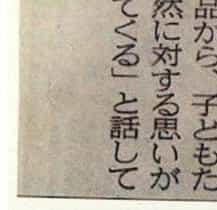 品から、子どもた
然に対する思いが
てくる」と話して